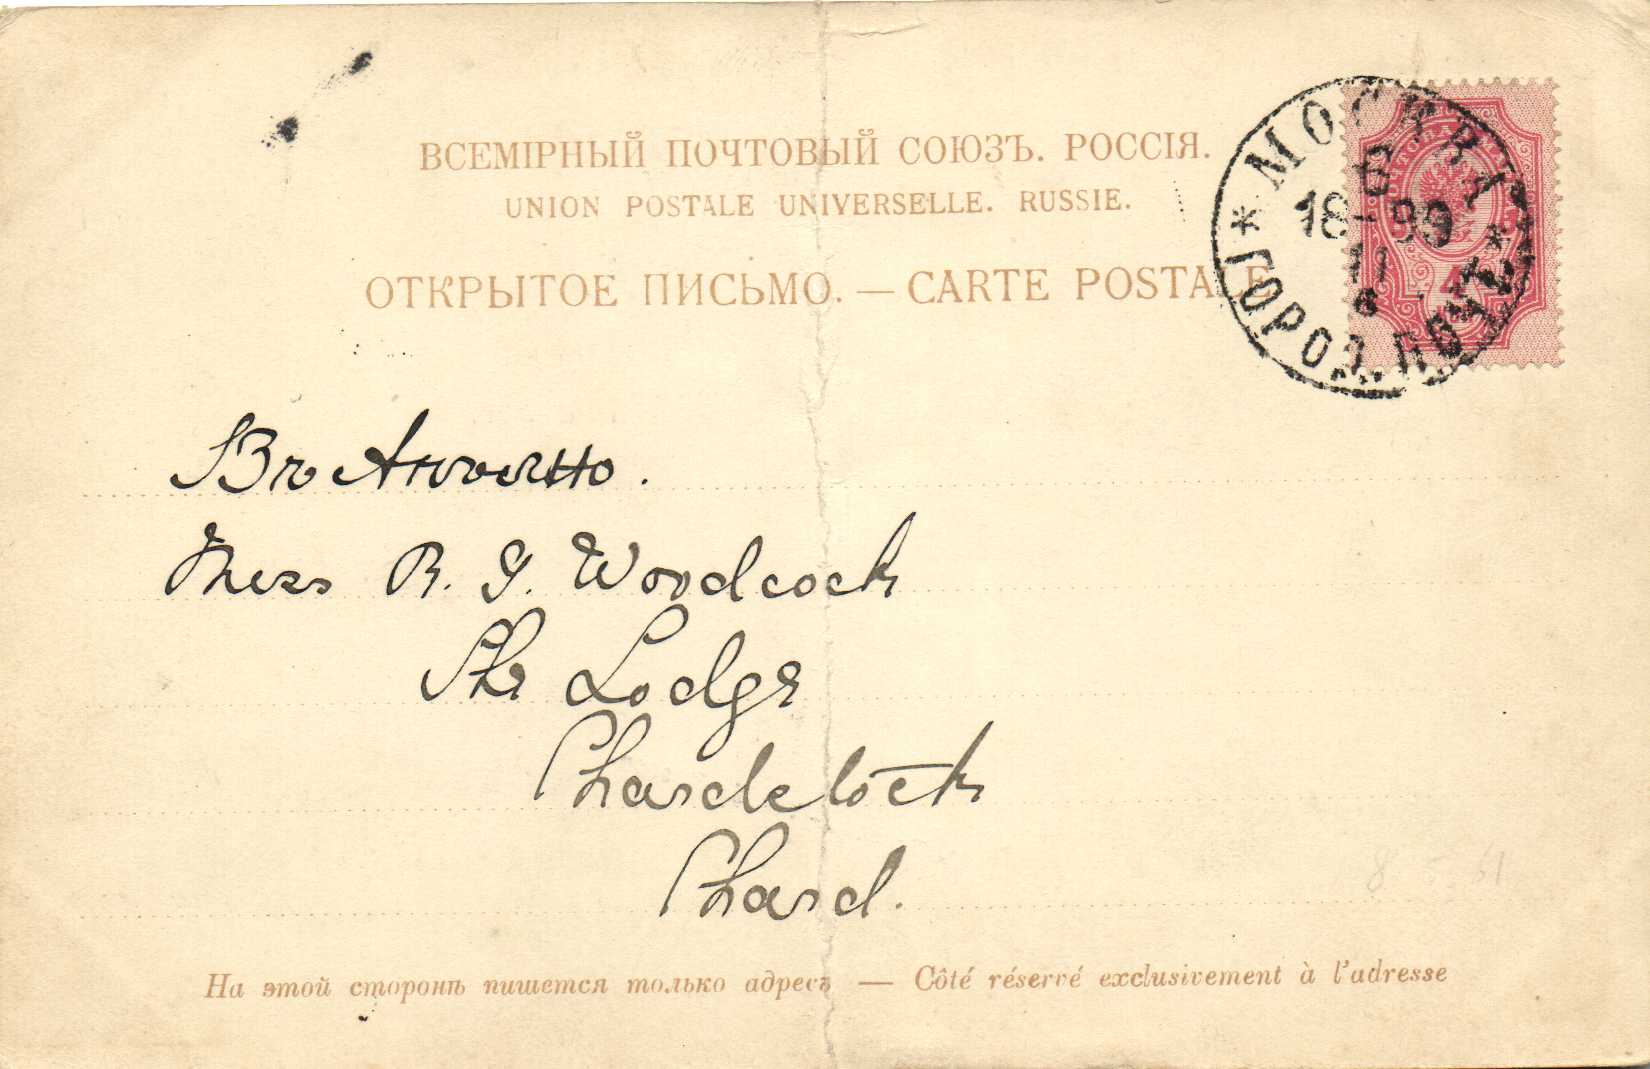 ВСЕМІРНЫЙ ПОЧТОВЫЙ СОЮЗЪ. РОССІЯ.
UNION POSTALE UNIVERSELLE. RUSSIE.
ОТКРЫТОЕ ПИСЬМО. — CARTE POSTALE
* МОСКВА *
6
18-99
ГОРОД. ПОЧТ
Въ
Miss R. J. Woodcock
The Lodge
Chardstock
Chard.
На этой сторонѣ пишется только адресъ — Côté réservé exclusivement à l'adresse